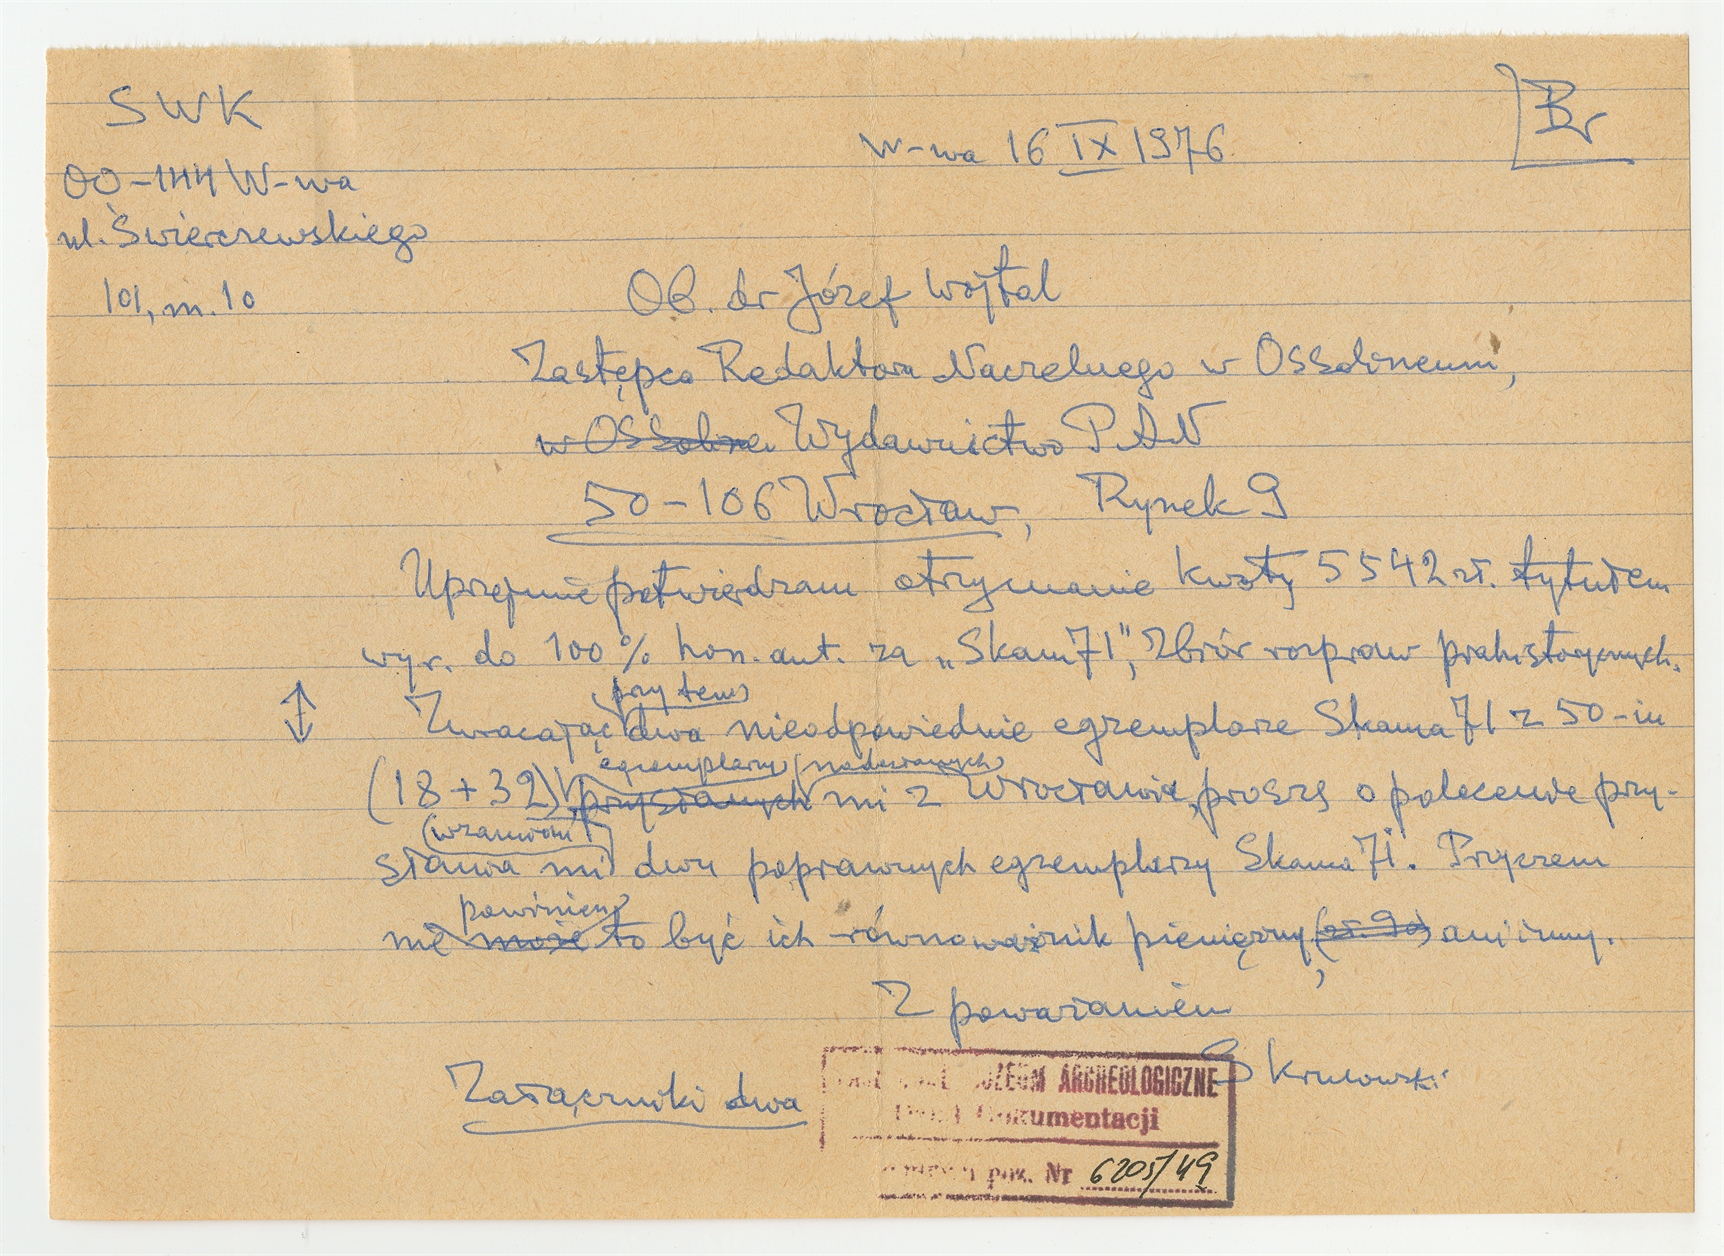 SWK
Br
W-wa 16 IX 1976
00-144 W-wa
ul. Świerczewskiego
101, m. 10
Ob. dr Józef Wojtal
Zastępca Redaktora Naczelnego w Ossolineum,
w Ossoline Wydawnictwo PAN
50-106 Wrocław, Rynek 9
Uprzejmie potwierdzam otrzymanie kwoty 5542 zł. tytułem
wyr. do 100% hon. aut. za „Skam 71”, Zbiór rozpraw prahistorycznych.
przy tem
Zwracając dwa nieodpowiednie egzemplarze Skama 71 z 50-iu
egzemplarzy nadesłanych
(18+32) przysłanych mi z Wrocławia, proszę o polecenie przy-
(wzamian)
słania mi dwu poprawnych egzemplarzy Skama 71. Przyczem
powinien
nie może to być ich równoważnik pieniężny, (zł. 90) ani inny.
Z poważaniem
S Krukowski
Załączniki dwa
MUZEUM ARCHEOLOGICZNE
Dział Dokumentacji
poz. Nr 6205/49